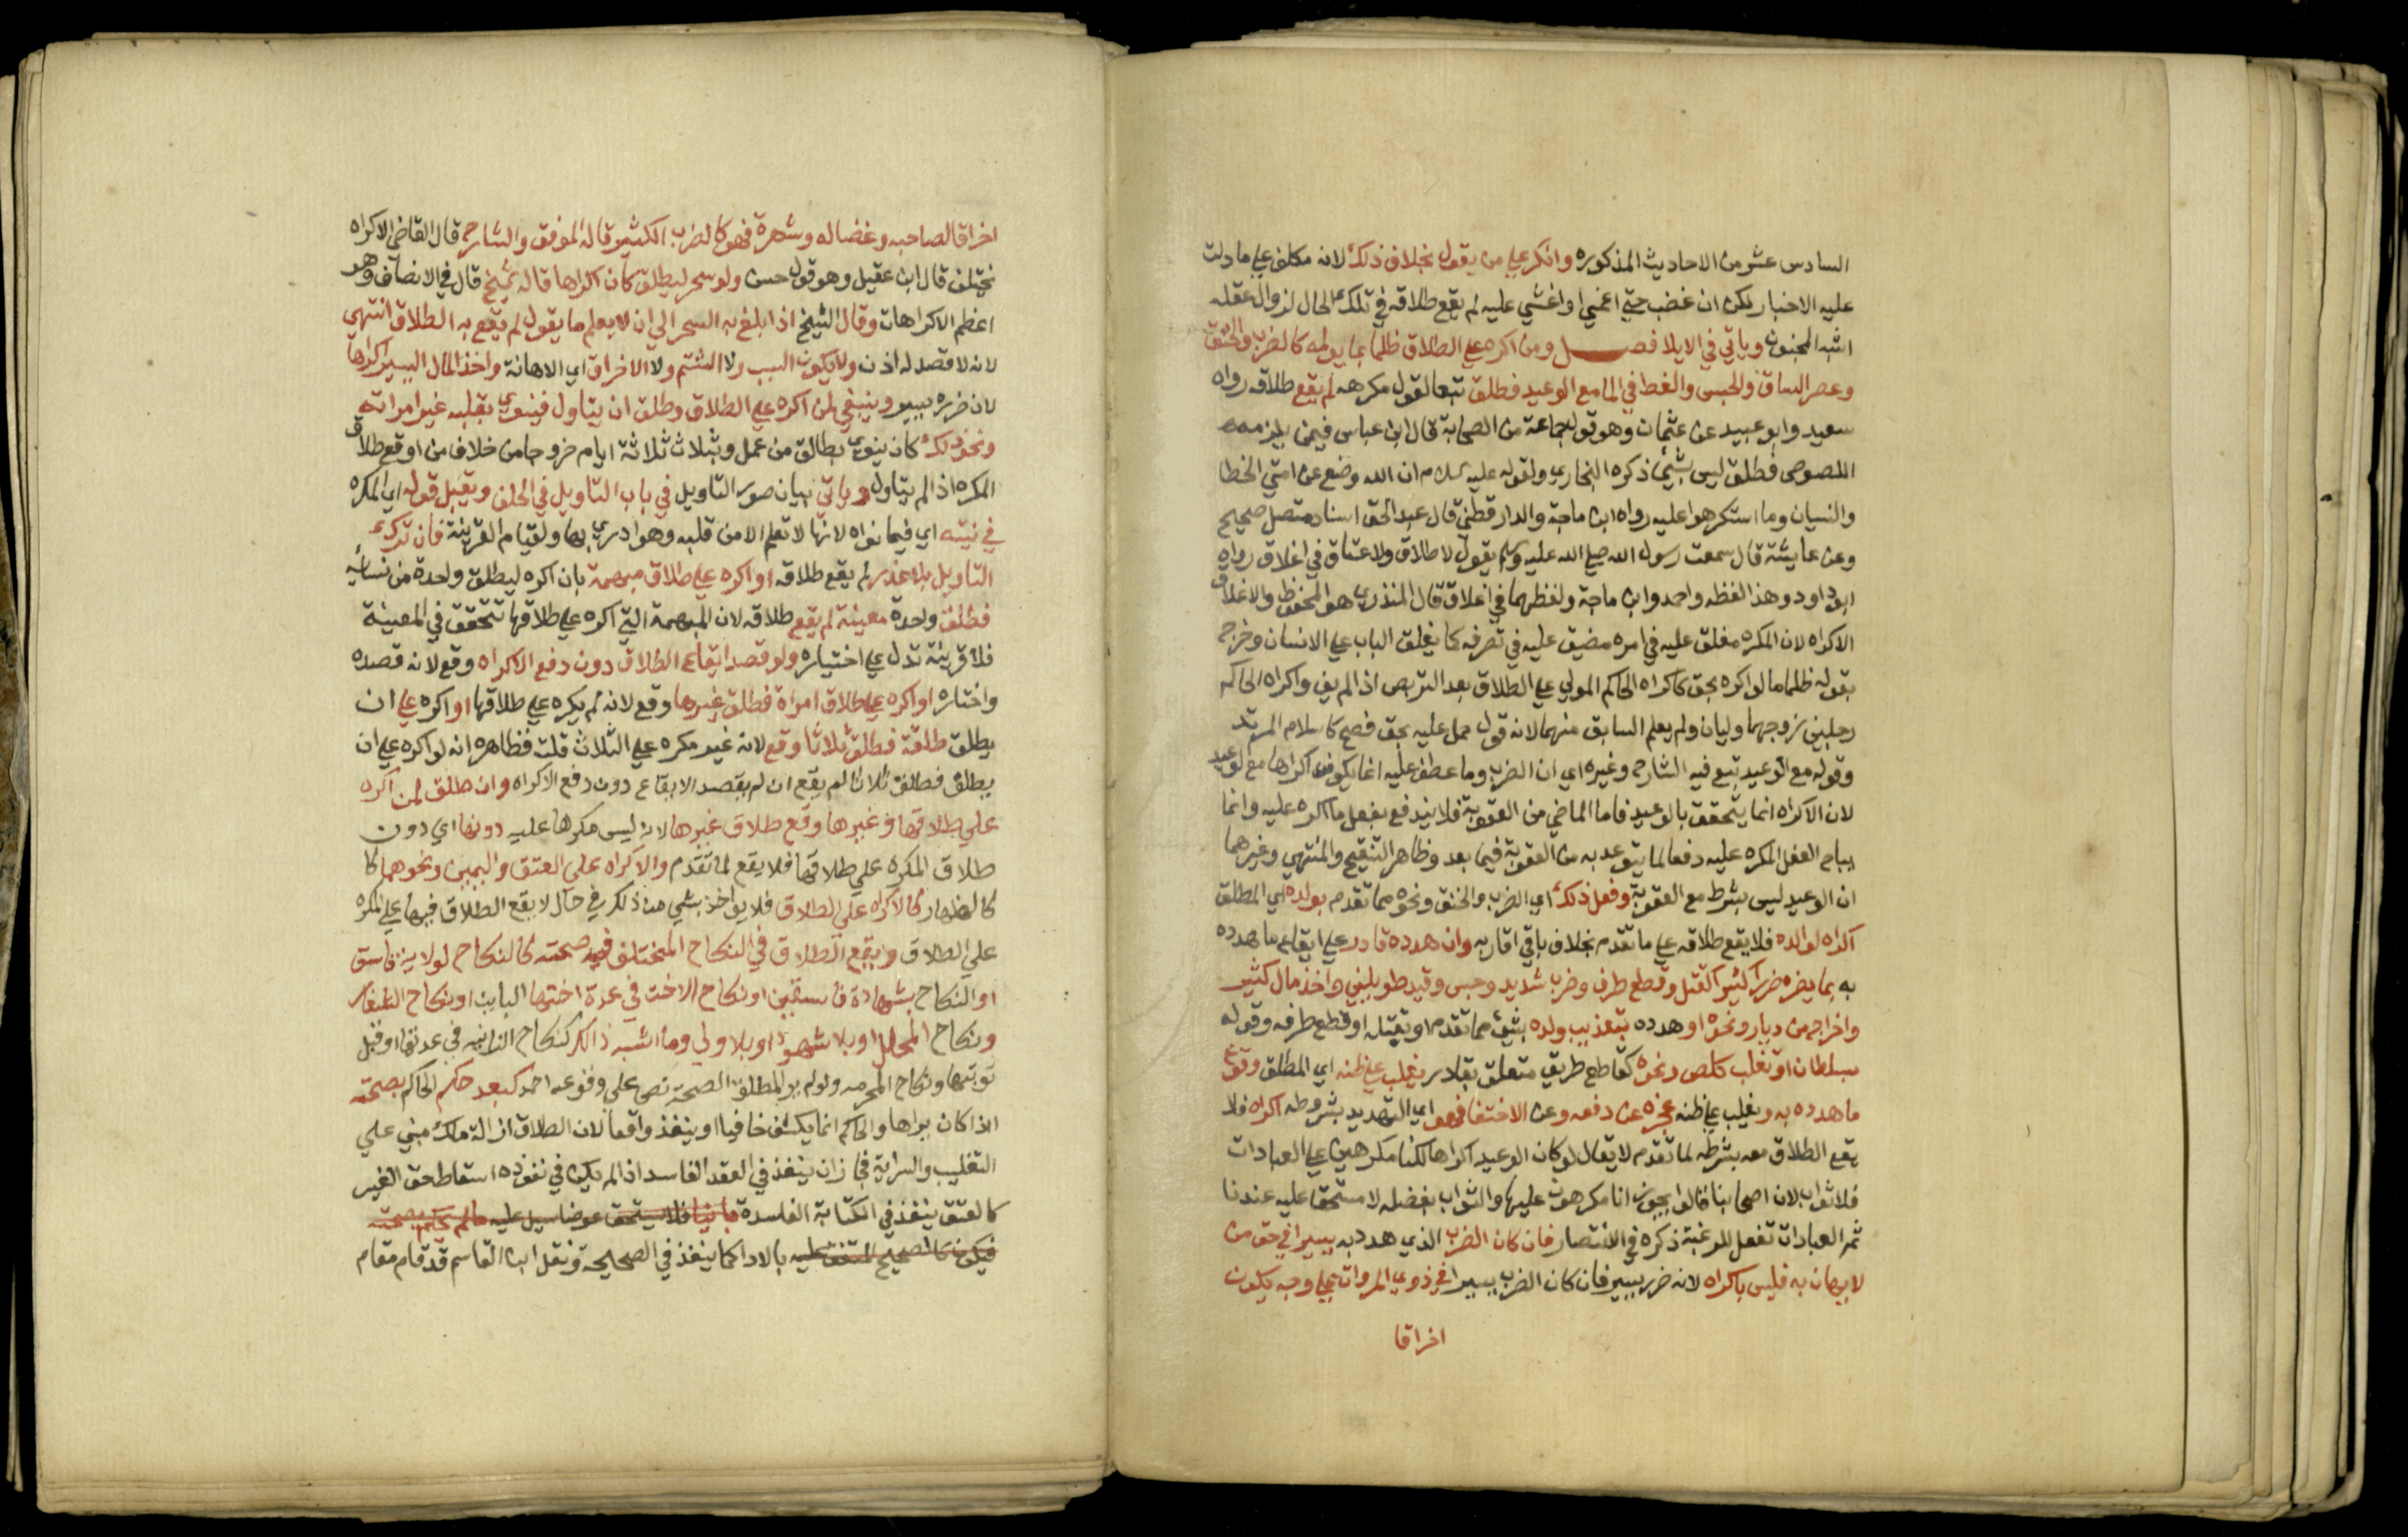 السادس عشر من الاحاديث المذكوره وانكر علي من يقول بخلاف ذلك لانه مكلف علي ما دلت
عليه الاخبار لكن ان غضب حتي اغمي او اغشي عليه لم يقع طلاقه في تلك الحال لزوال عقله
اشبه المجنون وياتي في الايلا فصل ومن اكره علي الطلاق ظلما بما يولمه كالضرب والخنق
وعصر الساق والحبس والغط في الما مع الوعيد فطلق تبعا لقول مكرهه لم يقع طلاقه رواه
سعيد وابو عبيد عن عثمان وهو قول جماعة من الصحابة قال ابن عباس فيمن يلزمه
اللصوص فطلق ليس بشئ ذكره البخاري ولقوله عليه السلام ان الله وضع عن امتي الخطا
والنسيان وما استكرهوا عليه رواه ابن ماجة والدارقطني قال عبد الحق اسناد متصل صحيح
وعن عايشة قال سمعت رسول الله صلي الله عليه وسلم يقول لا طلاق ولا عتاق في اغلاق رواه
ابو داود وهذا لفظه واحمد وابن ماجة ولفظهما في اغلاق قال المنذري هو المحفوظ والاغلاق
الاكراه لان المكره مغلق عليه في امره مضيق عليه في تصرفه كما يغلق الباب علي الانسان وخرج
بقوله ظلما ما لو اكره بحق كاكراه الحاكم المولي علي الطلاق بعد التربص اذا لم يف واكراه الحاكم
رجلين زوجهما وليان ولم يعلم السابق منهما لانه قول حمل عليه بحق فصح كاسلام المرتد
وقوله مع الوعيد تبع فيه الشارح وغيره اي ان الضرب وما عطف عليه انما يكون اكراها مع الوعيد
لان الاكراه انما يتحقق بالوعيد فاما الماضي من العقوبة فلا يندفع بفعل ما اكره عليه وانما
يباح الفعل المكره عليه دفعا لما يتوعد به من العقوبة فيما بعد وظاهر التنقيح والمنتهي وغيرهما
ان الوعيد ليس بشرط مع العقوبة وفعل ذلك اي الضرب والخنق ونحوه مما تقدم بولده اي المطلق
اكراه لوالده فلا يقع طلاقه علي ما تقدم بخلاف باقي اقاربه وان هدده قادر علي ايقاع ما هدده
به بما يضره ضررا كثيرا كقتل وقطع طرف وضرب شديد وحبس وقيد طويلين واخذ مال كثير
واخراج من ديار ونحوه او هدده بتعذيب ولده بشئ مما تقدم او بقتله او قطع طرفه وقوله
بسلطان او تغلب كلص ونحوه كقاطع طريق متعلق بقادر يغلب علي ظنه اي المطلق وقوع
ما هدده به ويغلب علي ظنه عجزه عن دفعه وعن الاختفا فهو اي التهديد بشروطه اكراه فلا
يقع الطلاق معه بشرطه لما تقدم لا يقال لو كان الوعيد اكراها لكنا مكرهين علي العبادات
فلا ثواب لان اصحابنا قالوا يجوز انا مكرهون عليها والثواب بفضله لا مستحقا عليه عندنا
ثم العبادات تفعل للرغبة ذكره في الانتصار فان كان الضرب الذي هدد به يسيرا في حق من
لا يهان به فليس باكراه لانه ضرر يسير فان كان الضرب يسيرا في ذوي المروات علي وجه يكون
اخراقا
اخراقا لصاحبه وغضا له وشهرة فهو كالضرب الكثير قاله الموفق والشارح قال القاضي الاكراه
يختلف قال ابن عقيل وهو قول حسن ولو سحر ليطلق كان اكراها قاله الشيخ قال في الانصاف وهو
اعظم الاكراهات وقال الشيخ اذا بلغ به السحر الي ان لا يعلم ما يقول لم يقع به الطلاق انتهي
لانه لا قصد له اذن ولا يكون السب ولا الشتم ولا الاخراق اي الاهانة واخذ المال اليسير اكراها
لان ضرره يسير وينبغي لمن اكره علي الطلاق وطلق ان يتاول فينوي بقلبه غير امراته
ونحو ذلك كان ينوي بطالق من عمل وبثلاث ثلاثة ايام خروجا من خلاف من اوقع طلاق
المكره اذا لم يتاول وياتي بيان صور التاويل في باب التاويل في الحلف ويقبل قوله اي المكره
في نيته اي فيما نواه لانها لا تعلم الا من قلبه وهو ادري بها ولقيام القرينة فان ترك
التاويل بلا عذر لم يقع طلاقه او اكره علي طلاق مبهمة بان اكره ليطلق واحدة من نسائه
فطلق واحدة معينة لم يقع طلاقه لان المبهمة التي اكره علي طلاقها تتحقق في المعينة
فلا قرينة تدل علي اختياره ولو قصد ايقاع الطلاق دون دفع الاكراه وقع لانه قصده
واختاره او اكره علي طلاق امراة فطلق غيرها وقع لانه لم يكره علي طلاقها او اكره علي ان
يطلق طلقة فطلق ثلاثا وقع لانه غير مكره علي الثلاث قلت فظاهره انه لو اكره علي ان
يطلق فطلق ثلاثا لم يقع ان لم يقصد الايقاع دون دفع الاكراه وان طلق لمن اكره
علي طلاقها وغيرها وقع طلاق غيرها لانه ليس مكرها عليه دونها اي دون
طلاق المكره علي طلاقها فلا يقع لما تقدم والاكراه علي العتق واليمين ونحوهما كا
كالظهار كالاكراه علي الطلاق فلا يواخذ بشي من ذلك في حال لا يقع الطلاق فيها علي المكره
علي الطلاق ويقع الطلاق في النكاح المختلف في صحته كالنكاح لولاية فاسق
او النكاح بشهادة فاسقين او نكاح الاخت في عدة اختها الباين او نكاح الشغار
ونكاح المحلل او بلا شهود او بلا ولي وما اشبه ذالك كنكاح الزانيه في عدتها او قبل
توبتها ونكاح المحرمه ولو لم ير المطلق الصحة نص علي وقوعه احمد كبعد حكم الحاكم بصحته
اذا كان يراها والحاكم انما يكشف خافيا او ينفذ واقعا لان الطلاق ازالة ملك مبني علي
التغليب والسراية فجاز ان ينفذ في العقد الفاسد اذا لم يكن في نفوذه اسقاط حق الغير
كالعتق ينفذ في الكتابة الفاسدة فلا يستحق عوضا سيل عليه ما لم يحكم بصحته
فيكون كالصحيح المتفق عليه بالادا كما ينفذ في الصحيحة ونقل ابن القاسم قد قام مقام